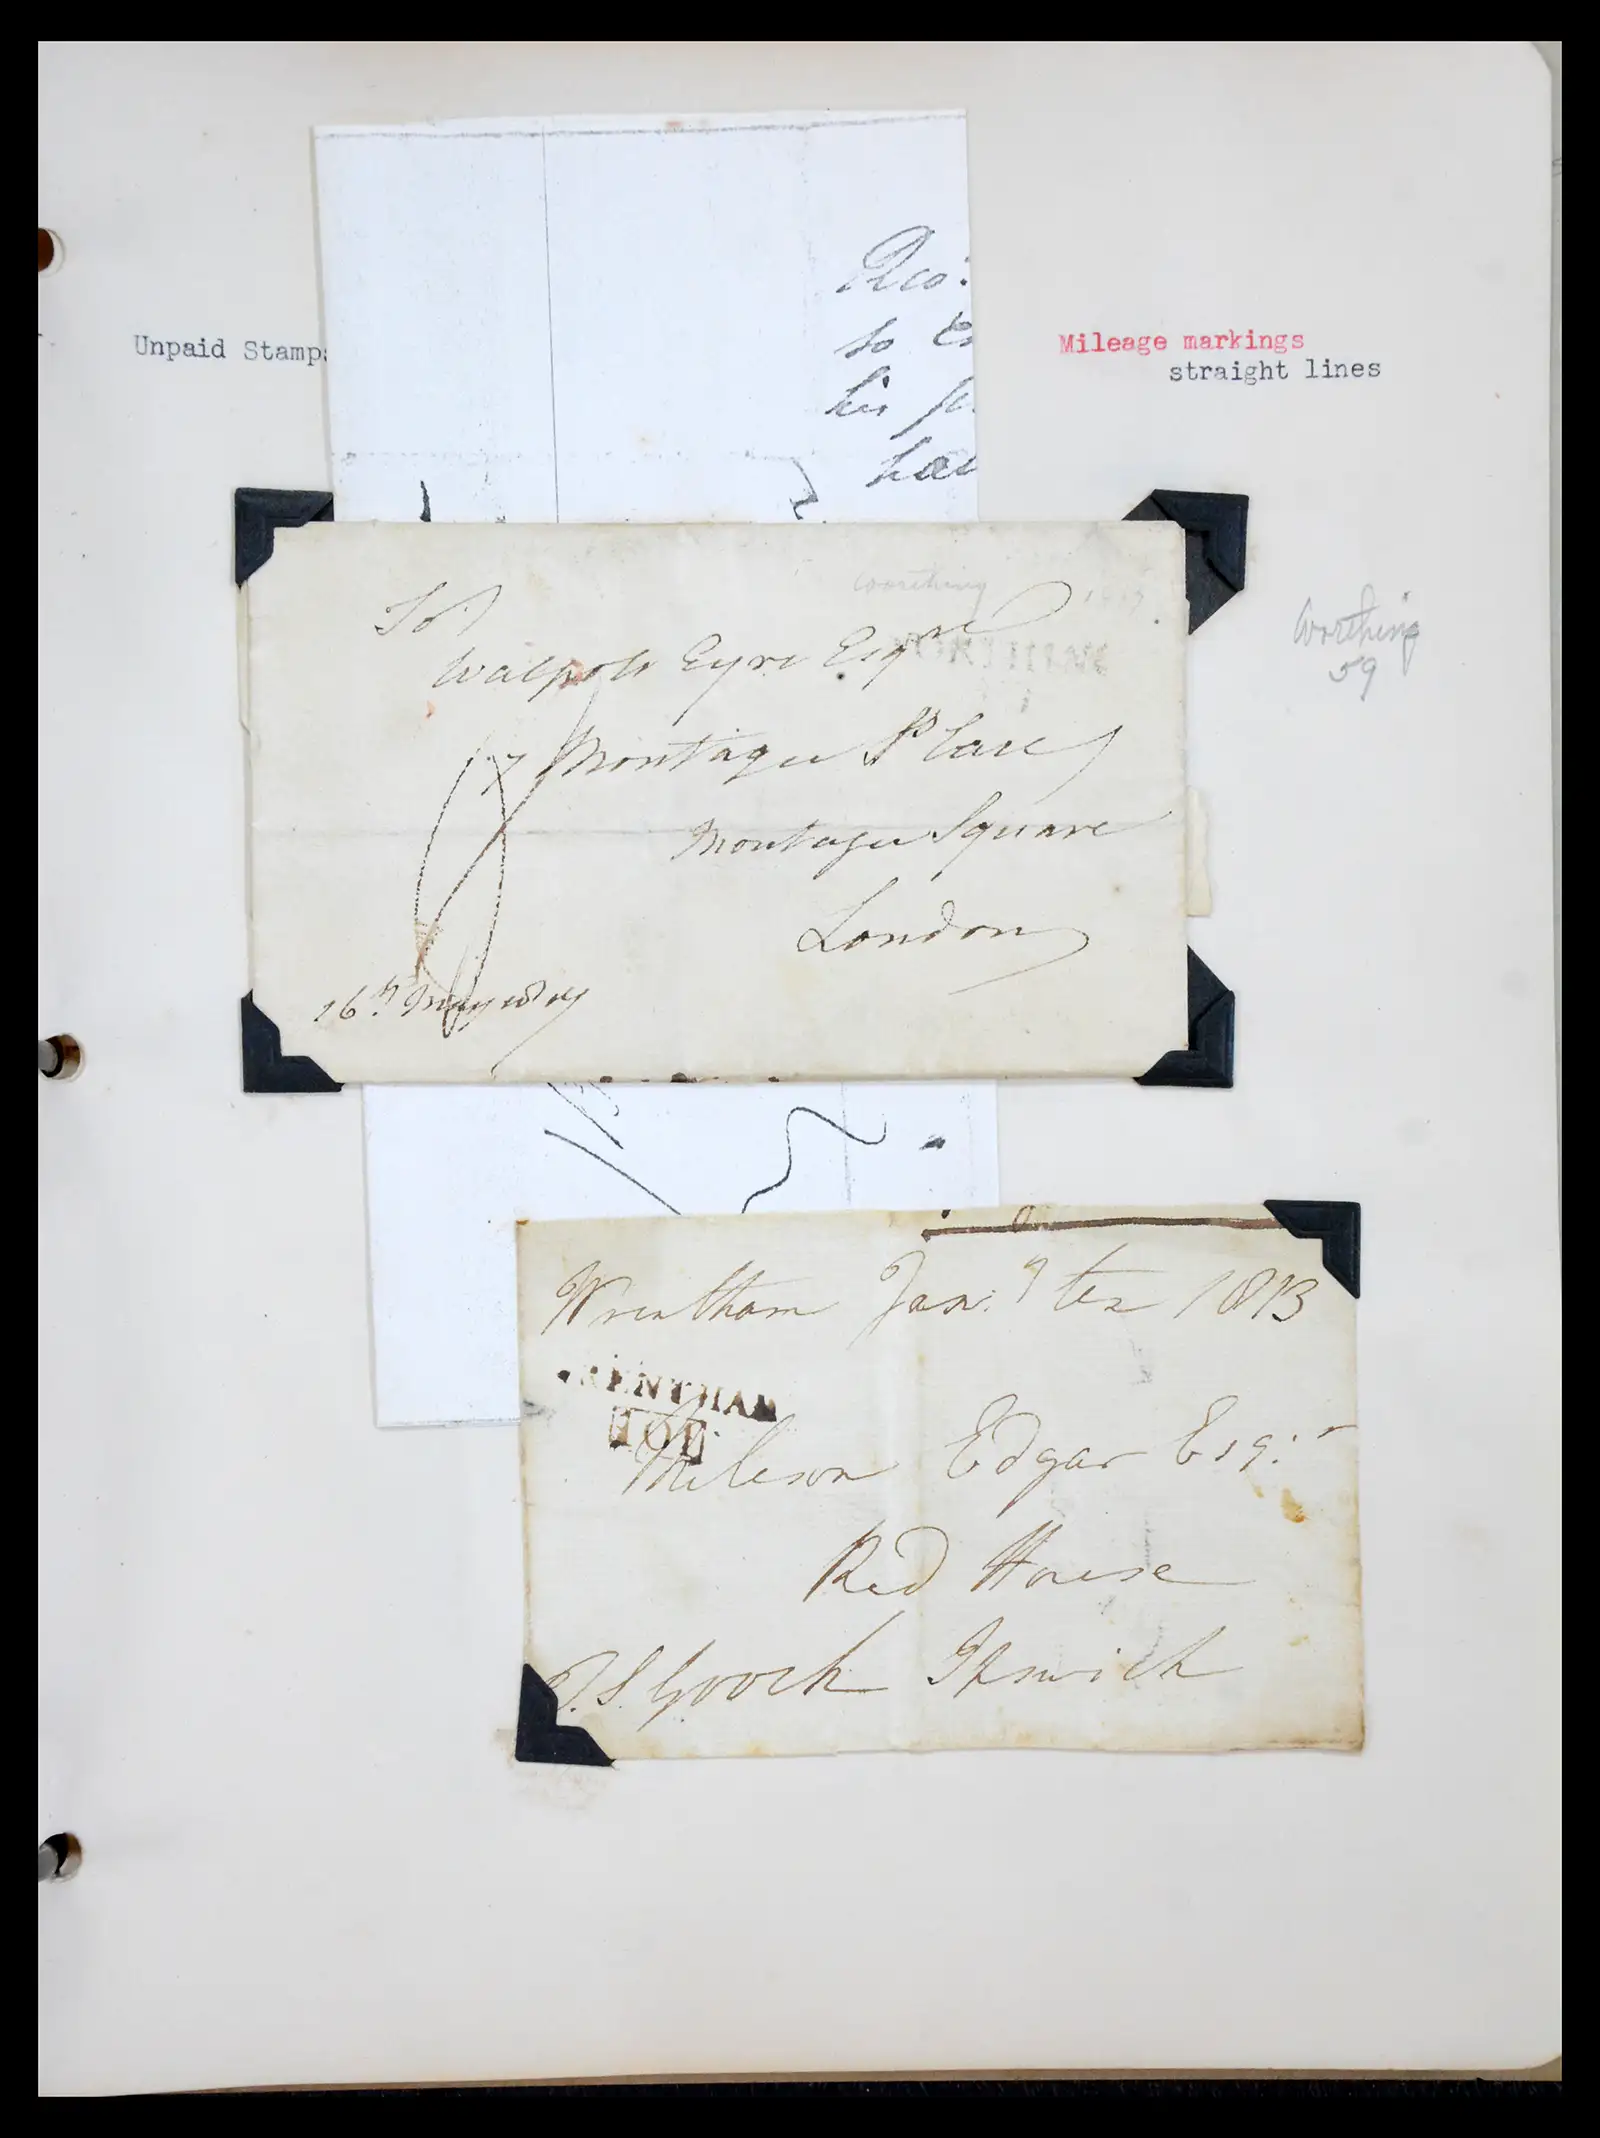 Unpaid Stamps
Mileage markings
straight lines
Rec:
to
his
hav
Worthing
WORTHING
To
Walpole Eyre Esqre
7 Montague Place
Montague Square
London
16th May
Worthing
59
Wrentham Jany ten 1813
WRENTHAM
101
Mileson Edgar Esq:r
Red House
T.S. Gooch Ipswich